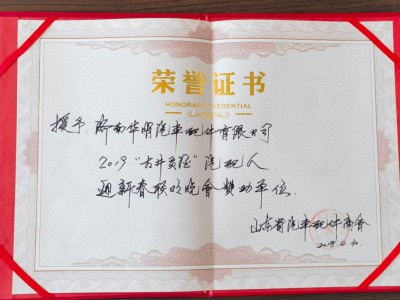 荣誉证书
HONORARY CREDENTIAL
授予 济南华明汽车配件有限公司
2019“古井贡酒”汽配人
迎新春联欢晚会赞助单位.
山东省汽车配件商会